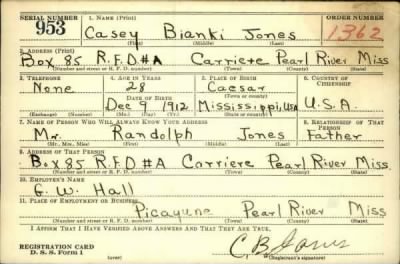 SERIAL NUMBER 1. NAME (Print) ORDER NUMBER
953 Casey Bianki Jones 1362
(First) (Middle) (Last)
2. ADDRESS (Print)
Box 85 R.F.D#A Carriere Pearl River Miss
(Number and street or R. F. D. number) (Town) (County) (State)
3. TELEPHONE 4. AGE IN YEARS 5. PLACE OF BIRTH 6. COUNTRY OF CITIZENSHIP
None 28 Caesar
DATE OF BIRTH (Town or county)
Dec 9 1912 Mississippi, USA U.S.A.
(Mo.) (Day) (Yr.) (State or country)
7. NAME OF PERSON WHO WILL ALWAYS KNOW YOUR ADDRESS 8. RELATIONSHIP OF THAT PERSON
Mr. Randolph Jones Father
(Mr., Mrs., Miss) (First) (Middle) (Last)
9. ADDRESS OF THAT PERSON
Box 85 R.F.D #A Carriere Pearl River Miss.
(Number and street or R. F. D. number) (Town) (County) (State)
10. EMPLOYER'S NAME
G. W. Hall
11. PLACE OF EMPLOYMENT OR BUSINESS
Picayune Pearl River Miss
(Number and street or R. F. D. number) (Town) (County) (State)
I AFFIRM THAT I HAVE VERIFIED ABOVE ANSWERS AND THAT THEY ARE TRUE.
REGISTRATION CARD
D. S. S. Form 1 C. B. Jones
(Registrant's signature)